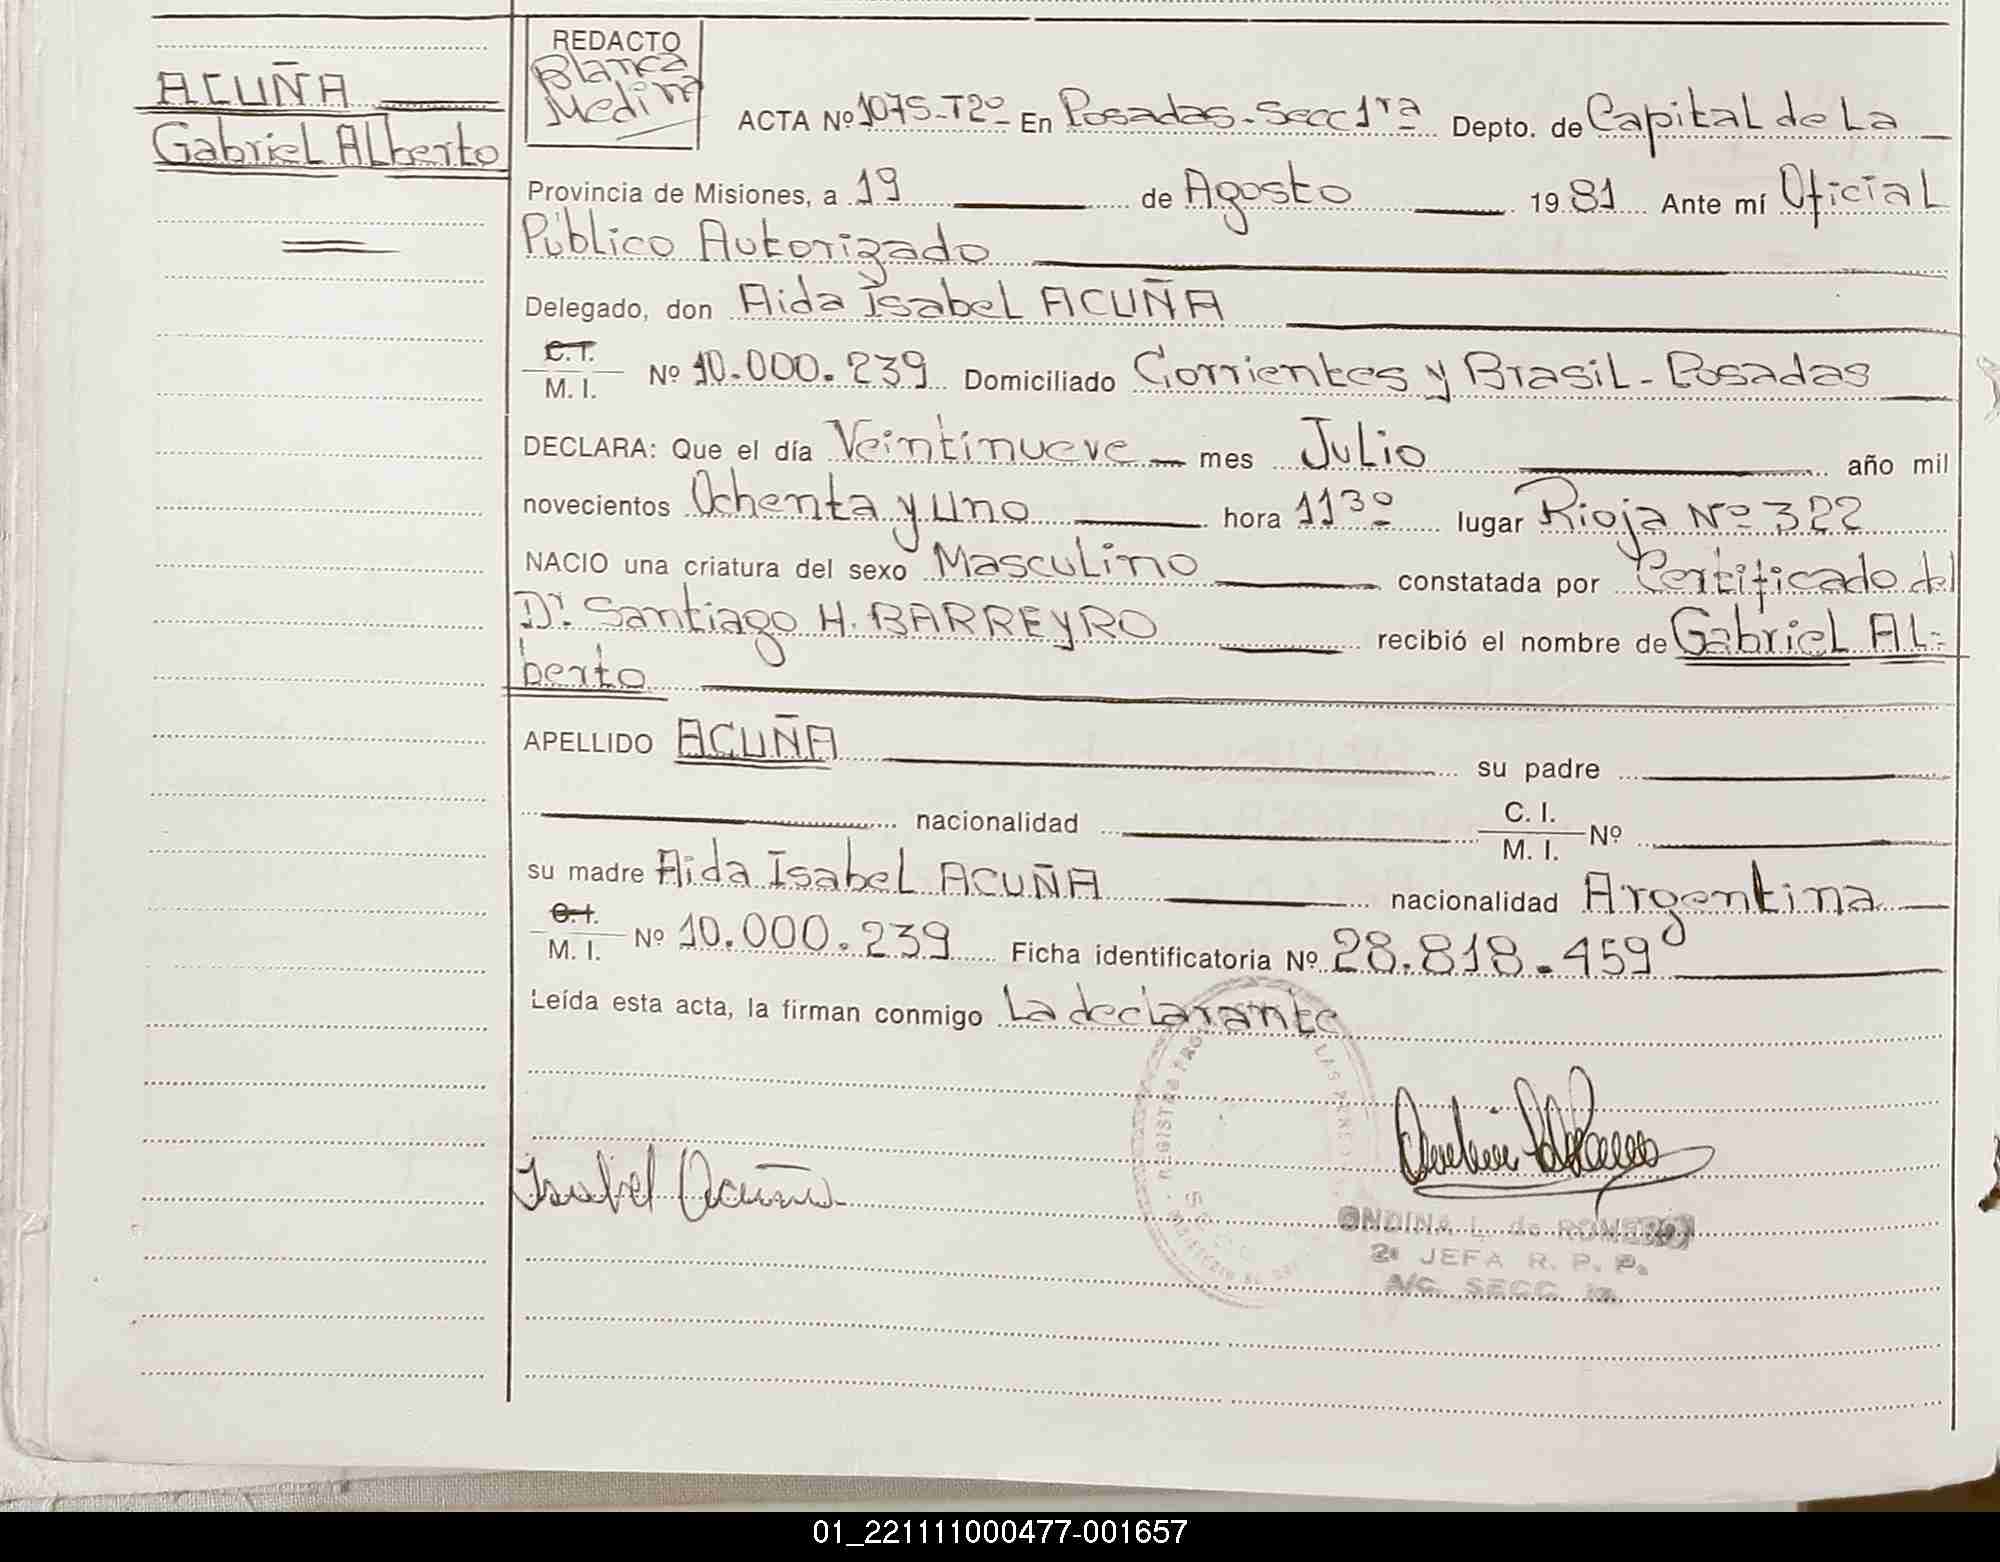 ACUÑA
Gabriel Alberto
REDACTO
Blanca
Medina
ACTA Nº 1075-T2º En Posadas-Secc 1ra Depto. de Capital de La
Provincia de Misiones, a 19 de Agosto 1981 Ante mí Oficial
Público Autorizado
Delegado, don Aida Isabel ACUÑA
C.I.
M. I. Nº 10.000.239 Domiciliado Corrientes y Brasil-Posadas
DECLARA: Que el día Veintinueve mes Julio año mil
novecientos Ochenta y uno hora 11 30 lugar Rioja Nº 322
NACIO una criatura del sexo Masculino constatada por Certificado del
Dr. Santiago H. BARREYRO recibió el nombre de Gabriel Al=
berto
APELLIDO ACUÑA su padre
nacionalidad C. I.
M. I. Nº
su madre Aida Isabel ACUÑA nacionalidad Argentina
C.I.
M. I. Nº 10.000.239 Ficha identificatoria Nº 28.818.459
Leída esta acta, la firman conmigo La declarante
Isabel Acuña
ONDINA L. de ROMERO
2a JEFA R. P. P.
A/C. SECC. 1a.
01_221111000477-001657